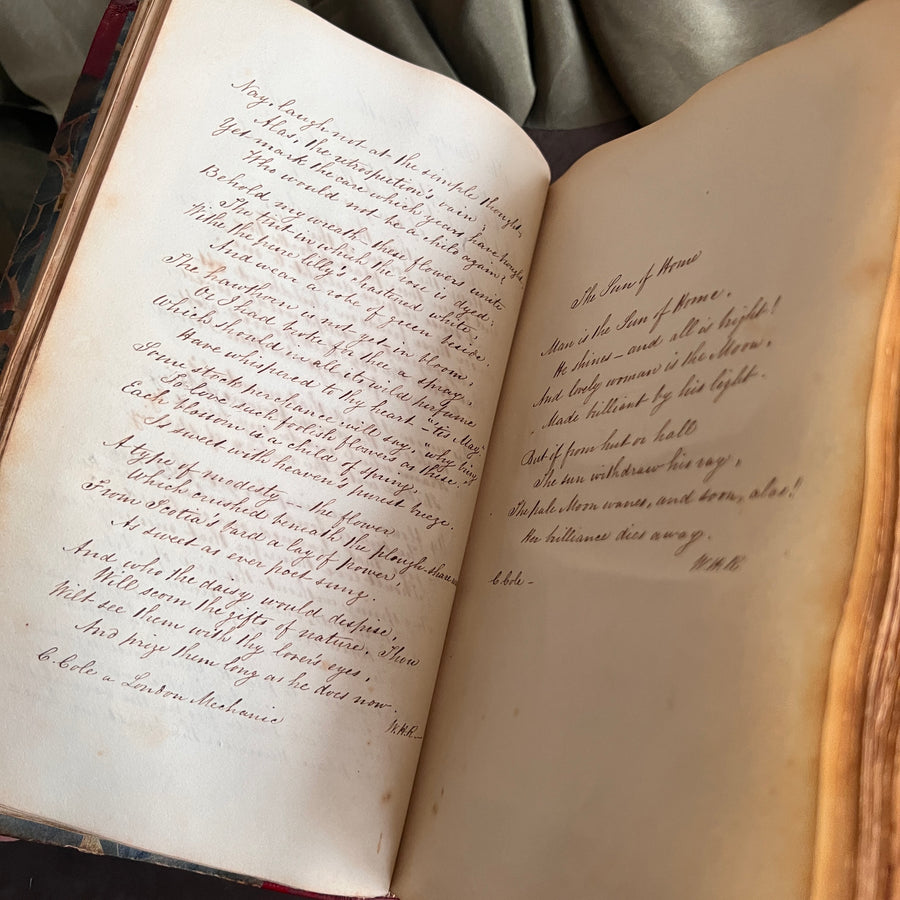 Nay, laugh not at the simple thought,
Alas, the retrospection's vain;
Yet mark the care which years have brought,
Who would not be a child again?
Behold my wreath — these flowers unite
The tint in which the rose is dyed;
Withe the pure lilly's chastened white,
And wear a robe of green beside.
The Hawthorn is not yet in bloom,
Or I had broke for thee a spray,
Which should in all its wild perfume
Have whispered to thy heart — "tis May"
Some stock merchance will say, "why bring
So love such foolish flowers as these."
Each blossom is a child of spring,
Is sweet with heaven's purest breeze.
A type of modesty — the flower
Which crushed beneath the plough-share
From Scotia's bard a lay of power
As sweet as ever poet sung.
And who the daisy would despise,
Will scorn the gifts of nature. Thou
Wilt see them with thy lover's eyes,
And prize them long as he does now.
W.H.R—
C. Cole a London Mechanic
The Sun of Home
Man is the Sun of Home,
He shines — and all is bright!
And lovely woman is the Moon,
Made brilliant by his light.
But if from hut or hall
The sun withdraw his ray,
The pale Moon wanes, and soon, alas!!
Her brilliance dies away.
W.H.R
C Cole —